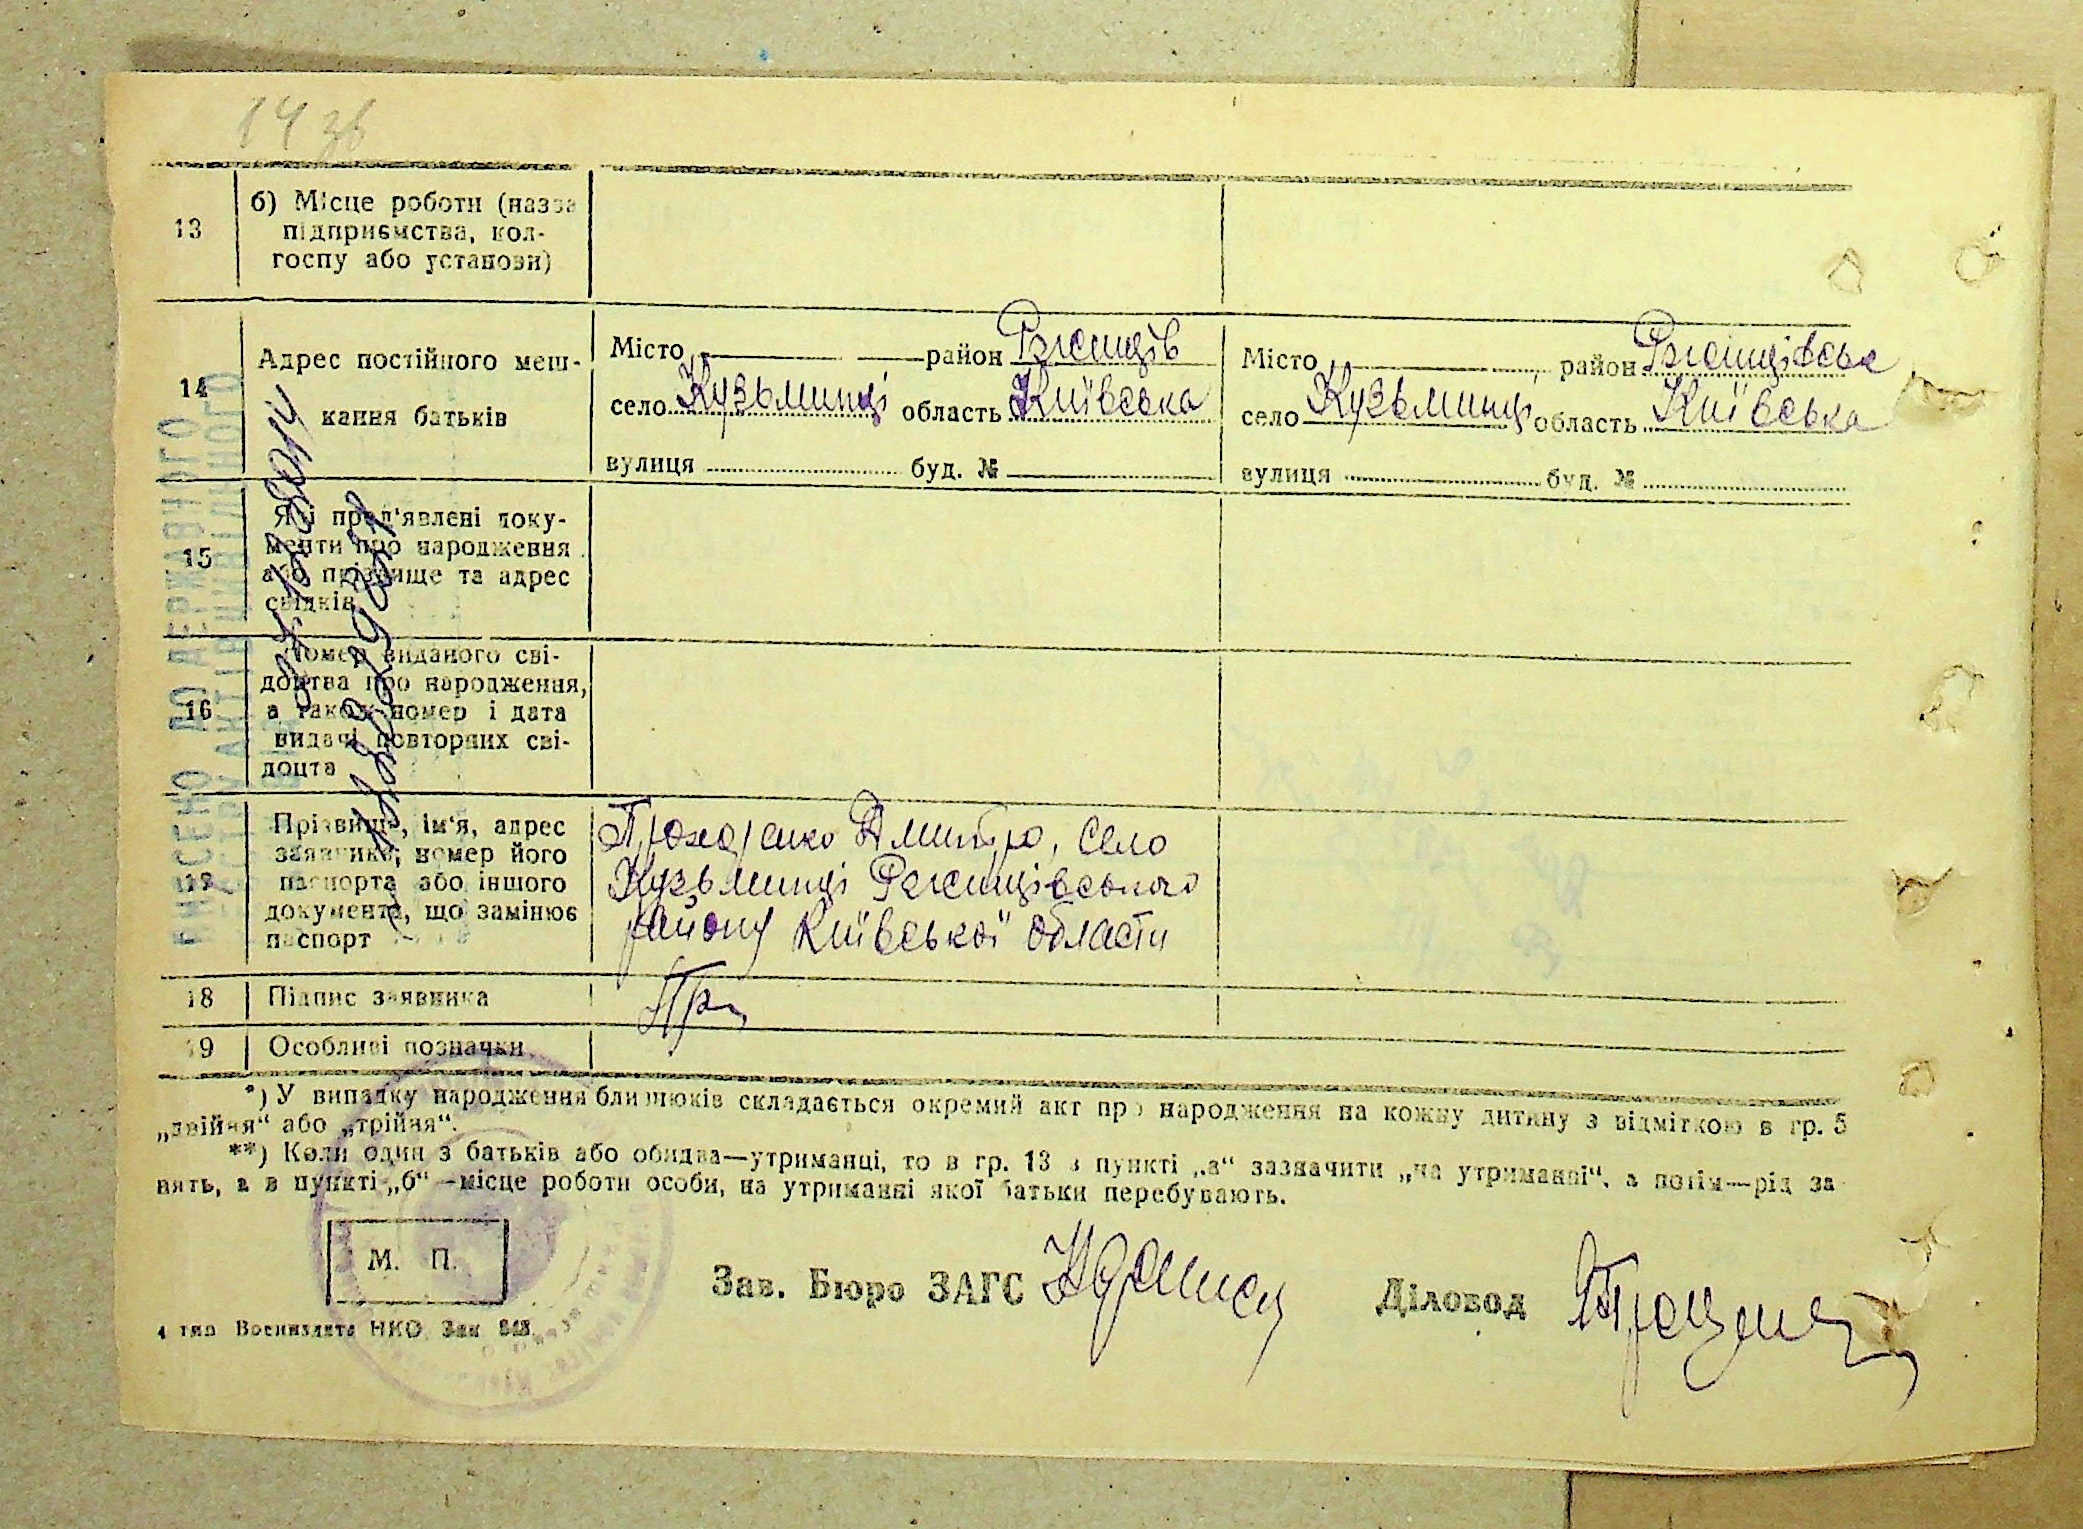 14 зв
13
б) Місце роботи (назва
підприємства, кол-
госпу або установи)
14
Адрес постійного меш-
кання батьків
Місто район Ржищів
село Кузьминці область Київська
вулиця буд. №
Місто район Ржищівськ
село Кузьминці область Київська
вулиця буд. №
15
Які пред'явлені доку-
менти про народження
або прізвище та адрес
свідків
16
Номер виданого сві-
доцтва про народження,
а також номер і дата
видачі повторних сві-
доцтв
17
Прізвище, ім'я, адрес
заявника, номер його
паспорта або іншого
документа, що замінює
паспорт
Прохоренко Дмитро, село
Кузьминці Ржищівського
району Київської области
18
Підпис заявника
Пр
19
Особливі позначки
*) У випадку народження близнюків складається окремий акт про народження на кожну дитину з відміткою в гр. 5
„двійня“ або „трійня“.
**) Коли один з батьків або обидва—утриманці, то в гр. 13 в пункті „а“ зазначити „на утриманні“, а потім—рід за
нять, а в пункті „б“—місце роботи особи, на утриманні якої батьки перебувають.
М. П.
Зав. Бюро ЗАГС
Діловод
4 тип Воениздата НКО Зак
ВНЕСЕНО ДО ДЕРЖАВНОГО
РЕЄСТРУ АКТІВ ЦИВІЛЬНОГО